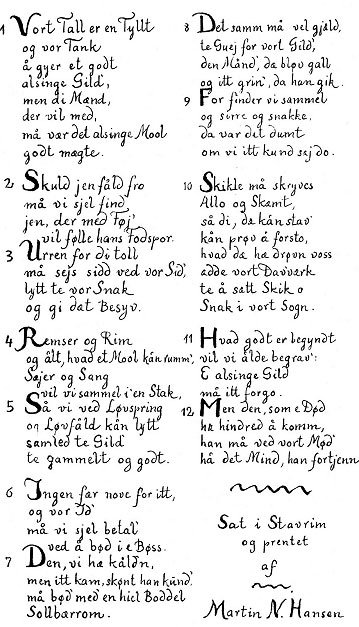 1 Vort Tall er en Tyllt
og vor Tank
å gyer et godt
alsinge Gild',
men di Mænd,
der vil med,
må var det alsinge Mool
godt mægte.
2 Skuld jen fåld fro
må vi sjel find
jen, der med Føj'
vil følle hans Fodspor.
3 Urren for di toll
må sejs sidd ved vor Sid',
lytt te vor Snak
og gi dat Besyv.
4 Remser og Rim
og ålt, hvad et Mool kån rumm',
Sejer og Sang
vil vi sammel i en Stak,
5 Så vi ved Løvspring
og Løvfåld kån lytt
samled te Gild
te gammelt og godt.
6 Ingen får nove for itt,
og vor Id'
må vi sjel betal'
ved å bød i e Bøss.
7 Den, vi hæ kåldn,
men itt kam, skønt han kund'
må bød med en hiel Boddel
Sollbærrom.
8 Del samm må vel gjæld,
te Guej for vort Gild',
den Månd', da bløv gall
og itt grin', da han gik.
9 For finder vi sammel
og sirre og snakke,
da var det dumt
om vi itt kund sej do.
10 Skikle må skryves
Allo og Skæmt,
så di, da kån stav'
kån prøv å forsto,
hvad da hæ drøvn voss
adde vort Davværk
te å sått Skik o
Snak i vort Sogn.
11 Hvad godt er begyndt
vil vi ålde begrav':
E alsinge Gild
må itt forgo.
12 Men den, som e Død
hæ hindred å komm,
han må ved vort Mød'
hå det Mind, han fortjenn
Sat i Stavrim
og prentet
af
Martin N. Hansen